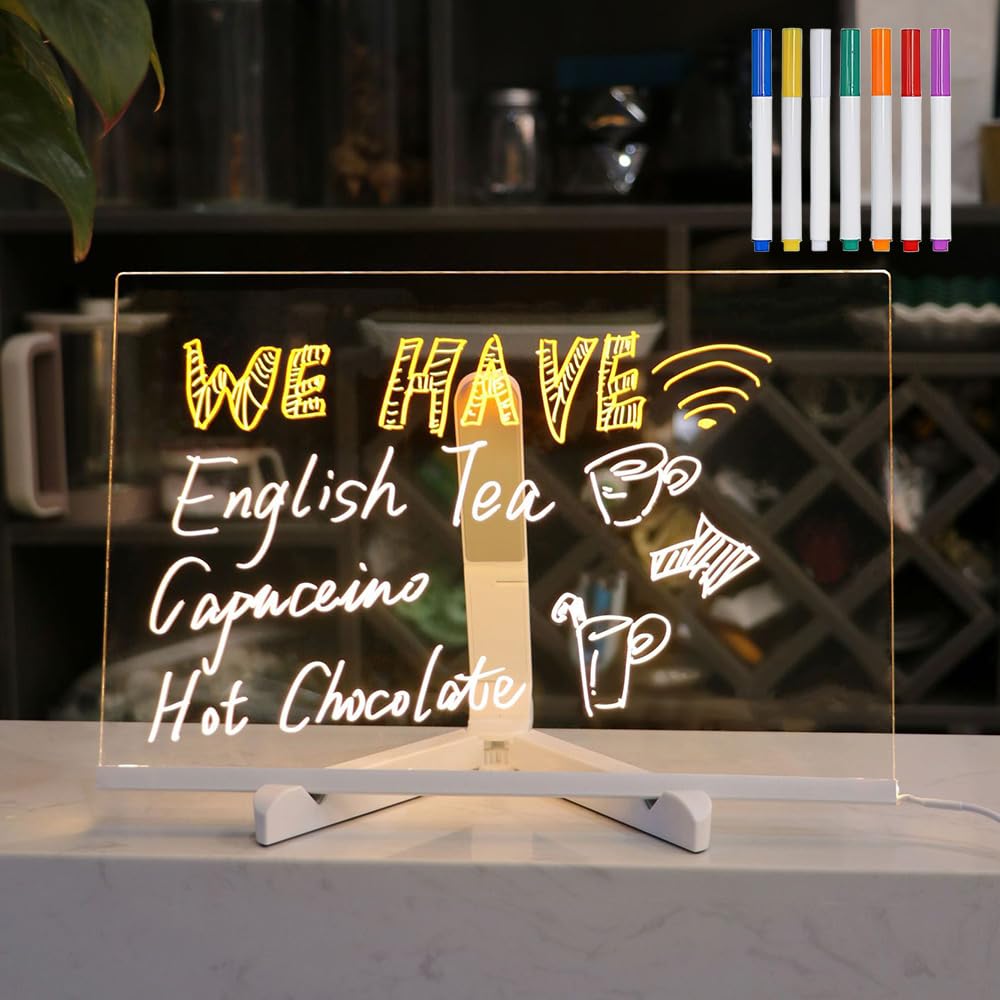 WE HAVE
English Tea
Capuceino
Hot Chocolate